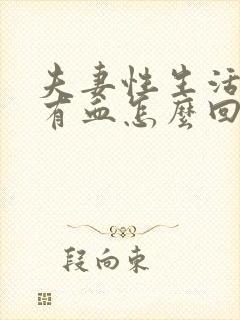 夫妻性生活
有血怎麼回
段向東